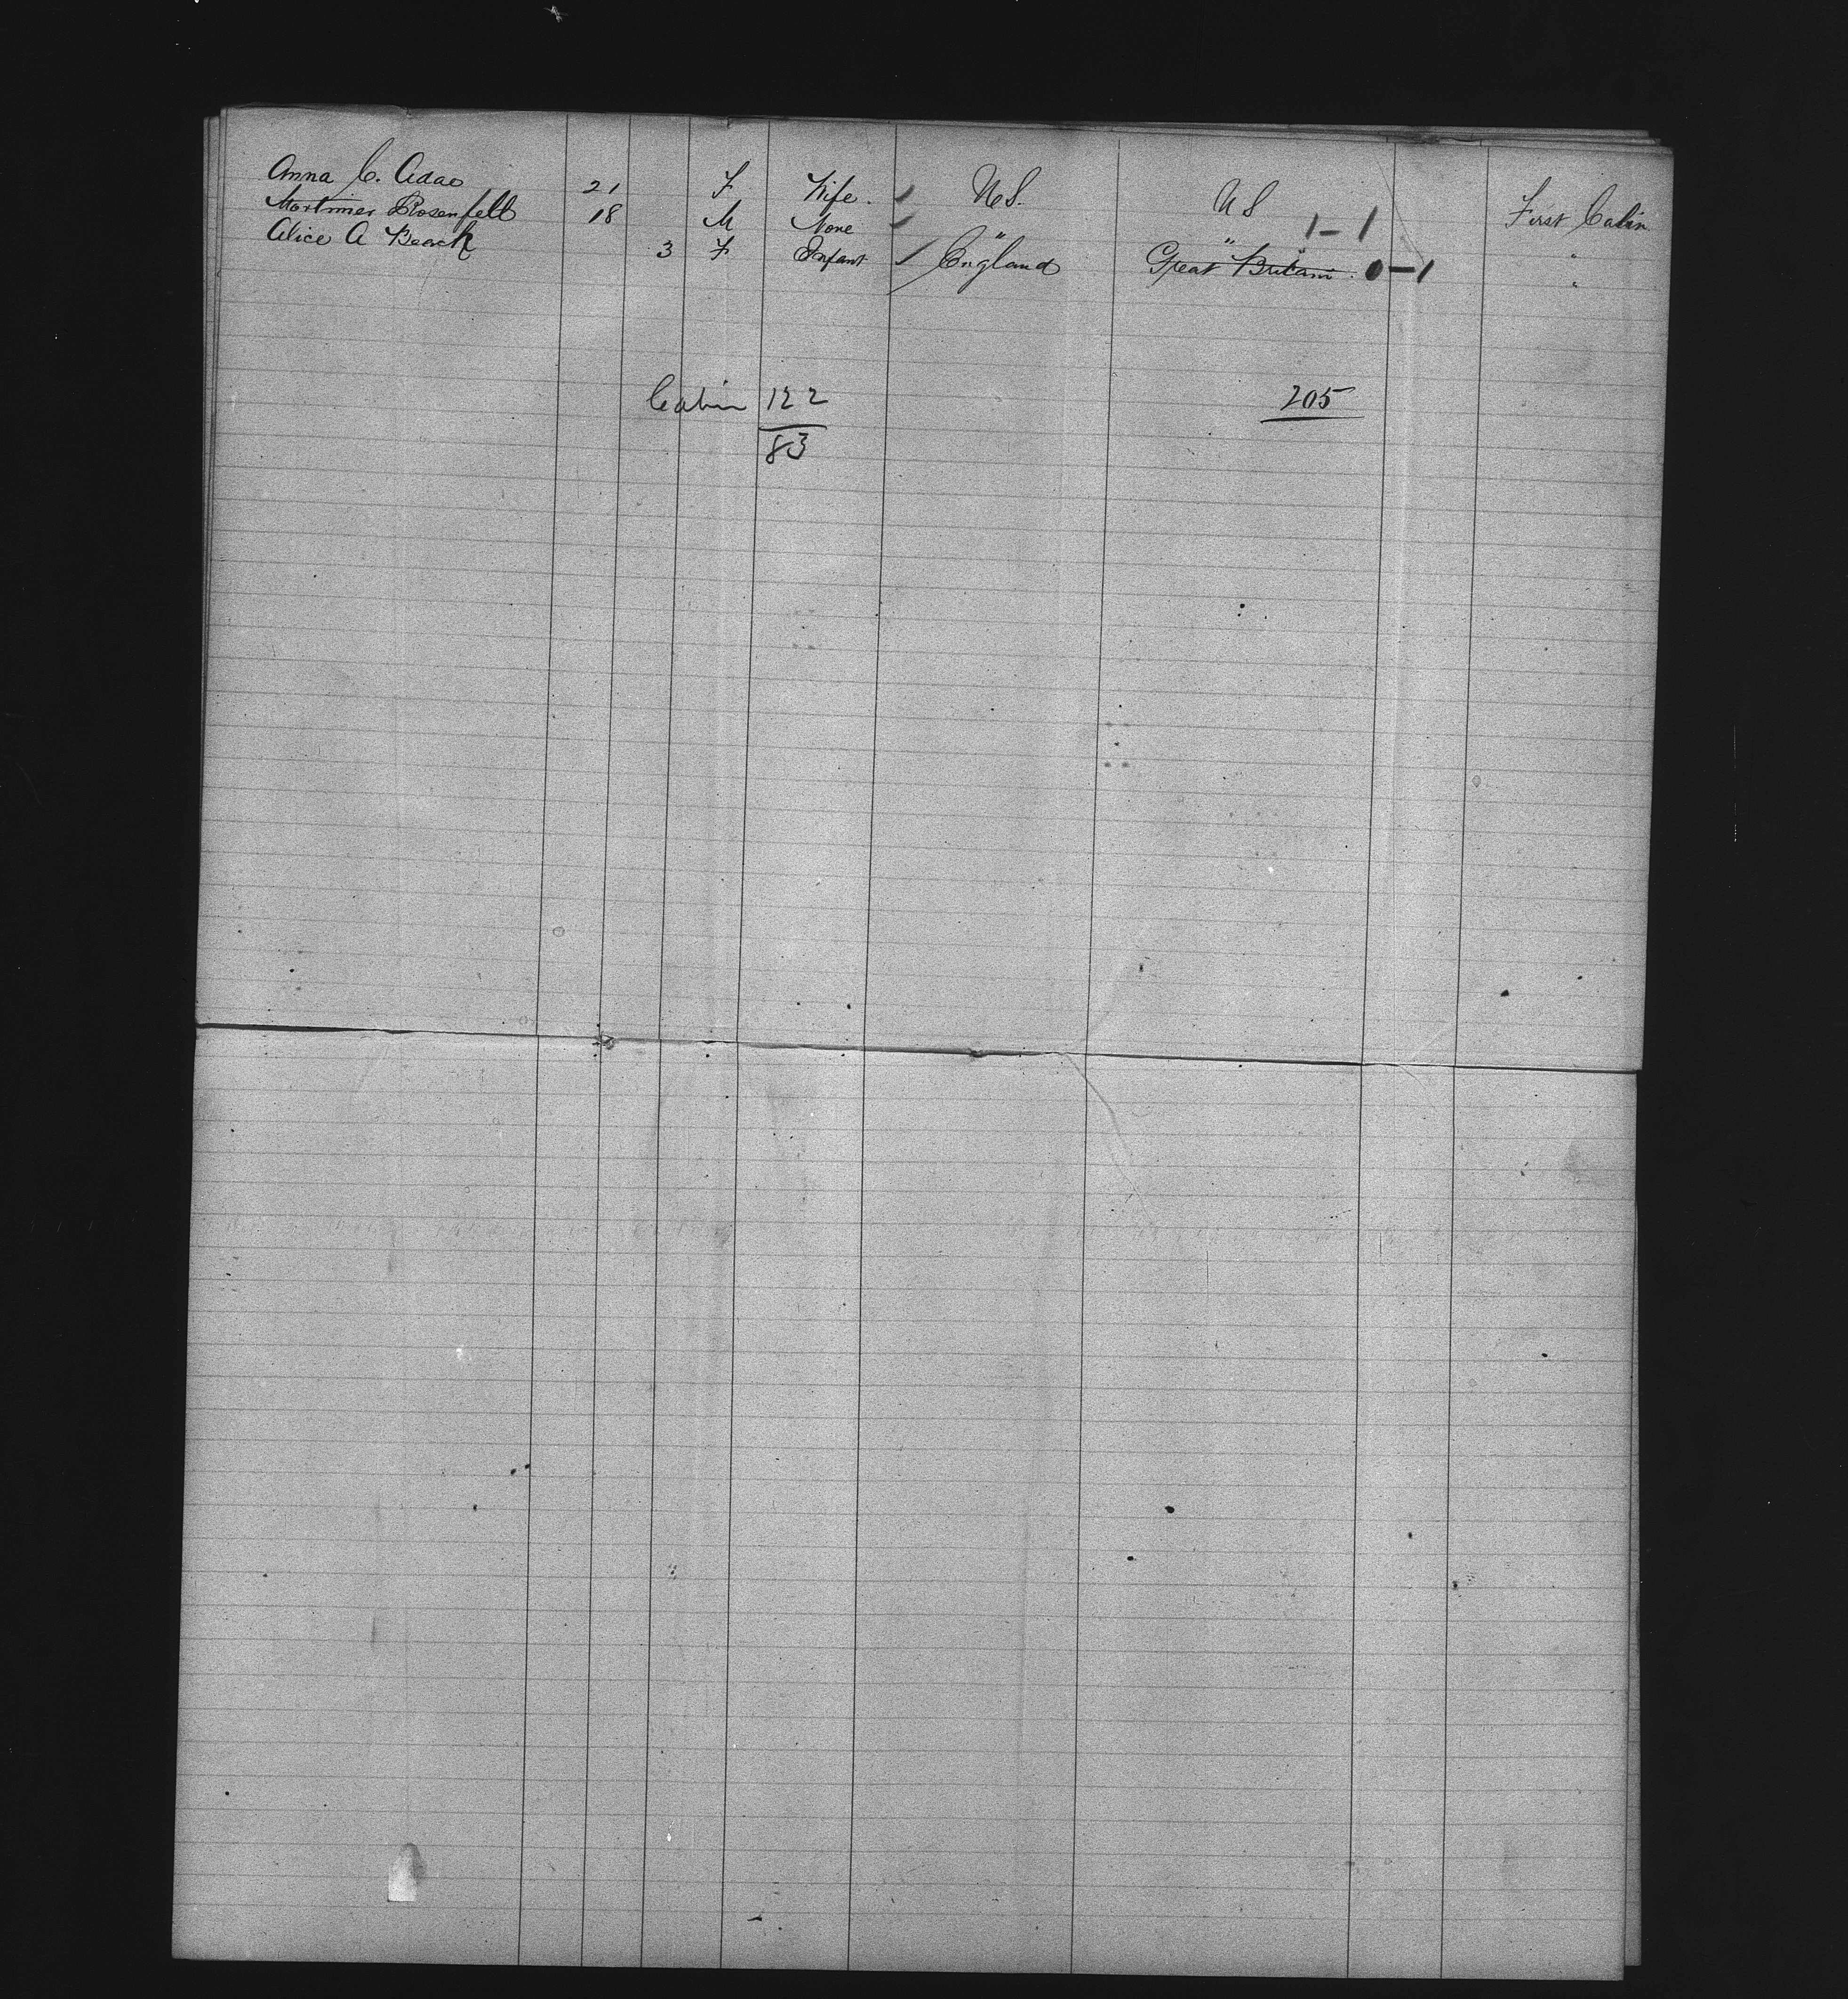 Anna C. Adae 21 F Wife. U.S. U S First Cabin
Mortimer Rosenfeld 18 M None " " " 1-1 "
Alice A Beach 3 F Infant England Great Britain 0-1 "
Cabin 122 205
83